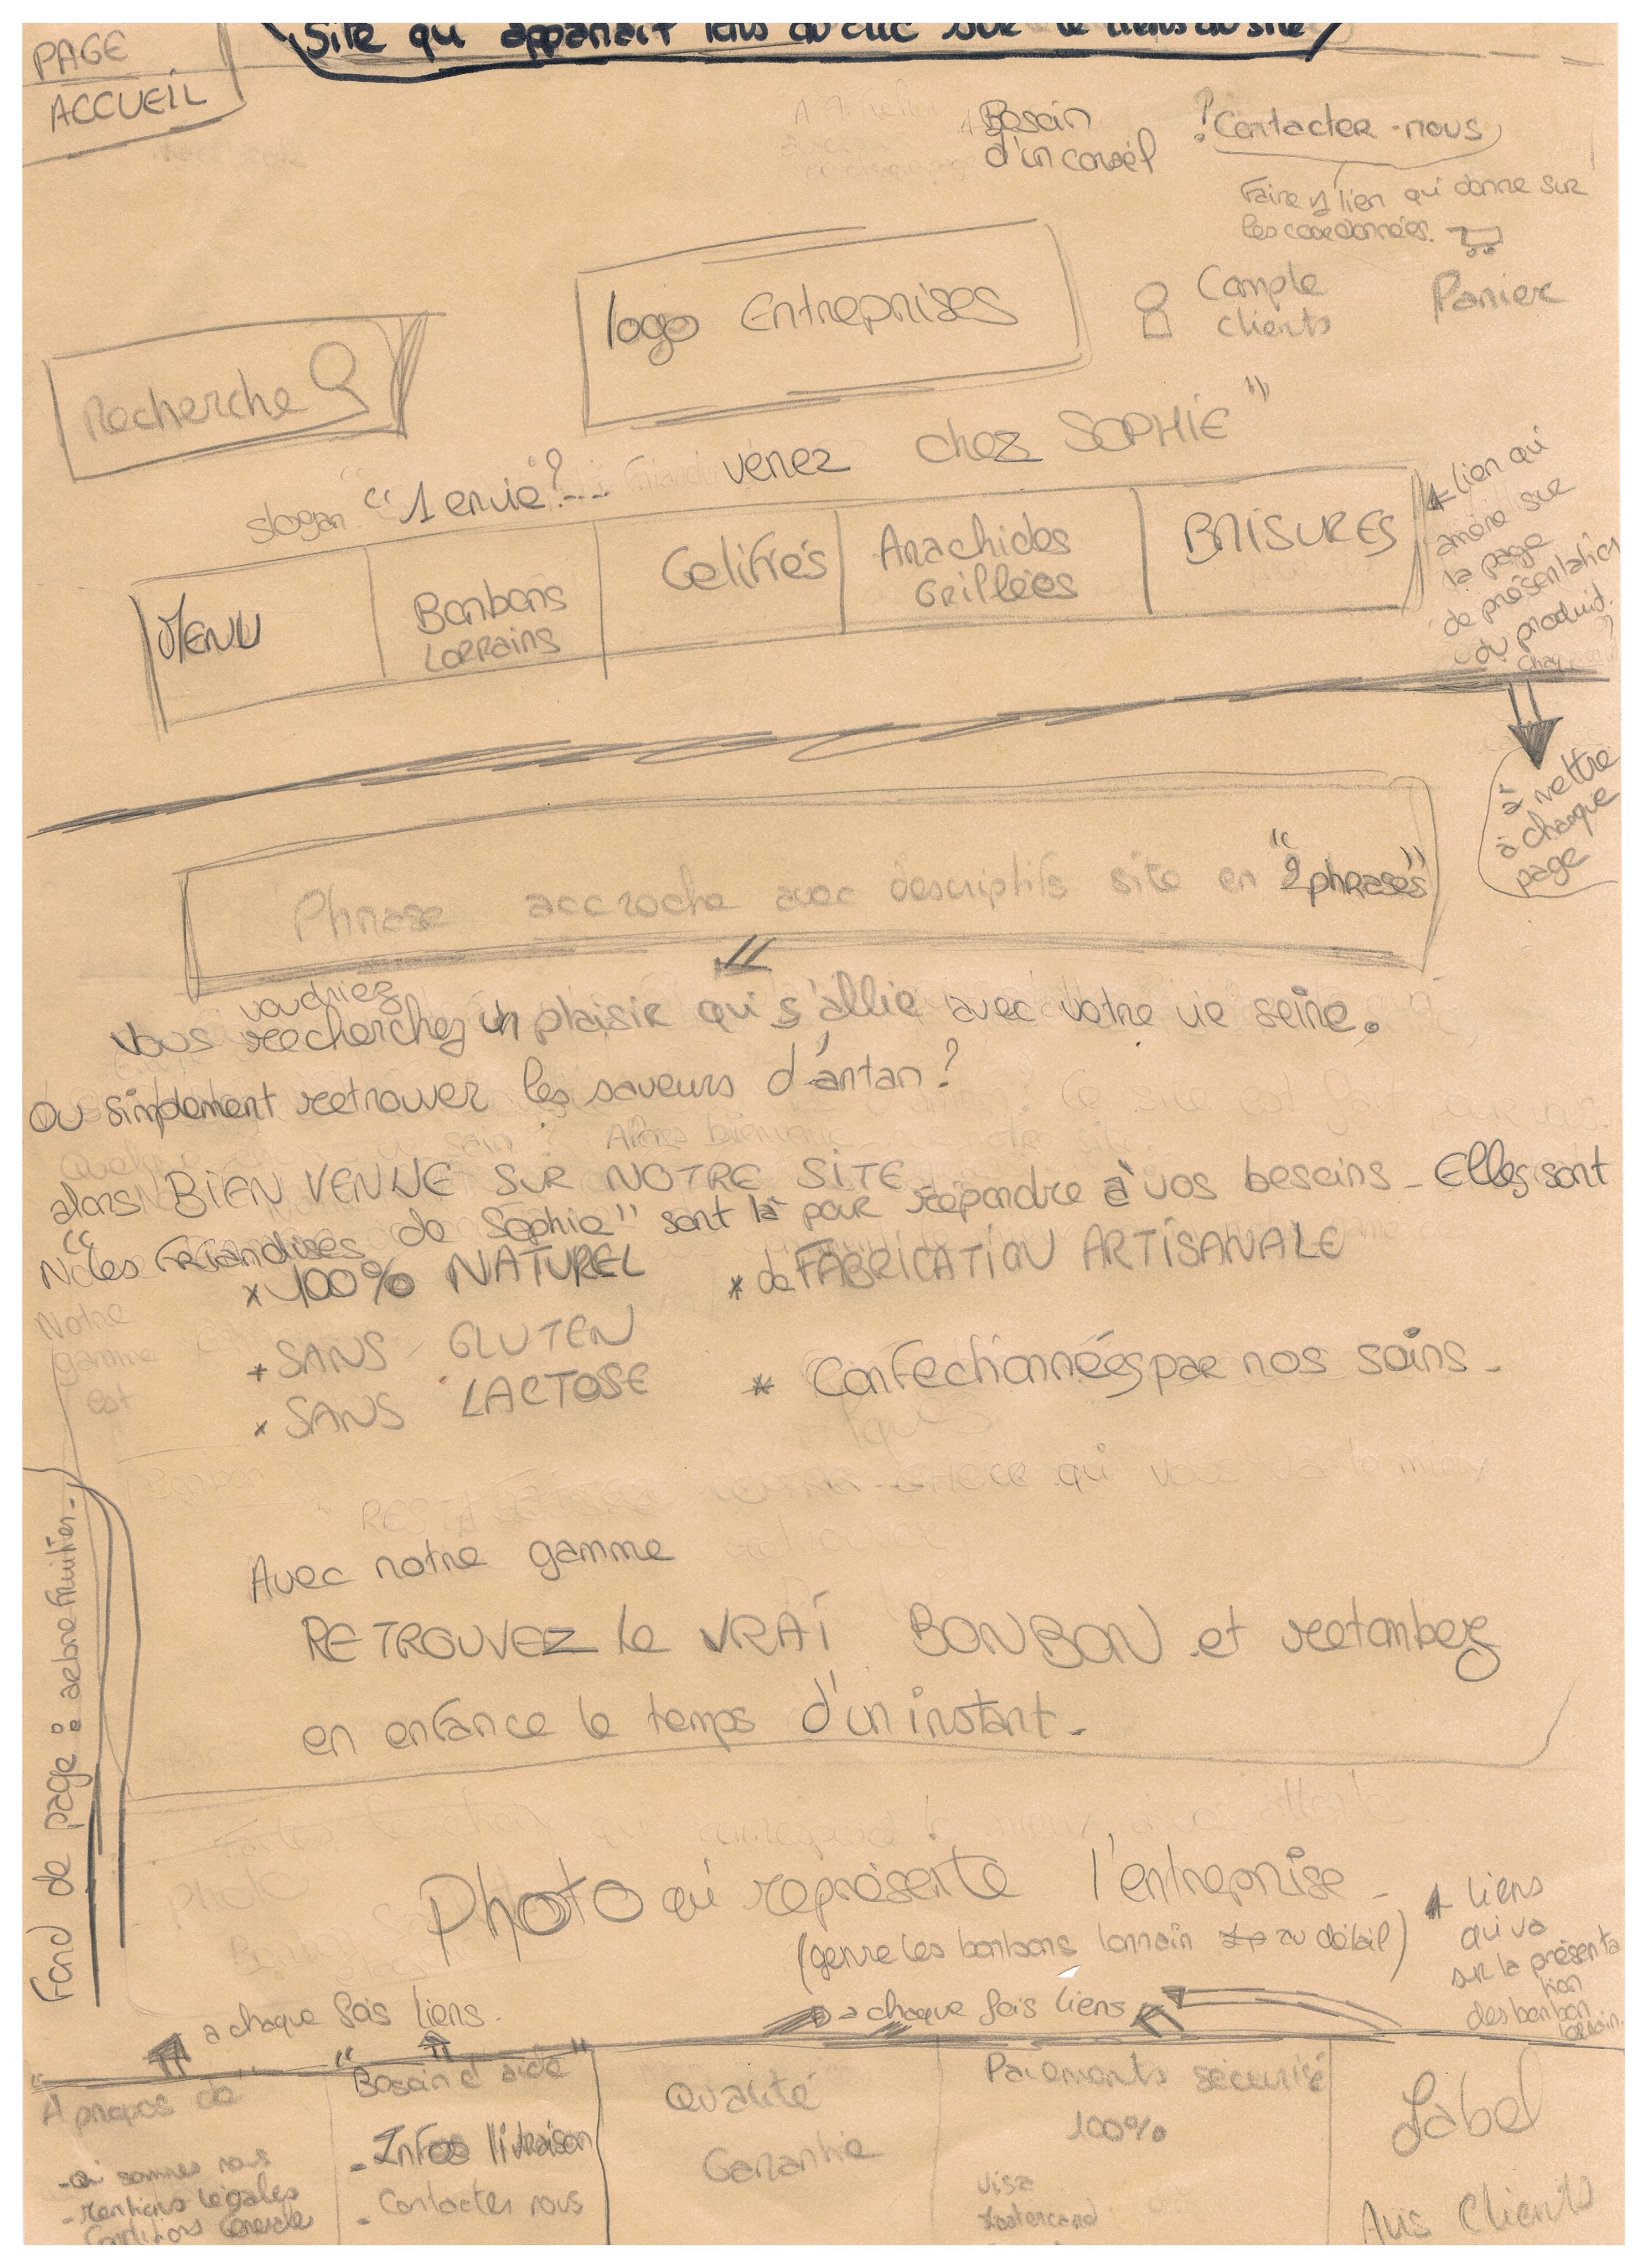 PAGE
ACCUEIL
Site qui apparait lors du clic sur le liens du site
Besoin
d'un conseil
? Contacter-nous
Faire 1 lien qui donne sur
les coordonnées.
logo Entreprises
Compte
clients
Panier
Recherche
slogan "1 envie?... venez chez SOPHIE"
MENU
Bonbons
Lorrains
Gelifiés
Arachides
Grillées
BRISURES
lien qui
amène sur
la page
de présentation
du produit.
à mettre
à chaque
page
Phrase accroche avec descriptifs site en "2 phrases"
voudriez
Vous recherchez un plaisir qui s'allie avec votre vie seine.
Ou simplement retrouver les saveurs d'antan?
alors BIENVENUE SUR NOTRE SITE
"les Friandises de Sophie" sont là pour répondre à vos besoins - Elles sont
* 100% NATUREL
* de FABRICATION ARTISANALE
* SANS GLUTEN
* SANS LACTOSE
* Confectionnées par nos soins -
Notre
gamme
est
Avec notre gamme
RETROUVEZ le VRAI BONBON et retombez
en enfance le temps d'un instant -
Fond de page : arbre fruitier -
Photo qui représente l'entreprise -
(genre les bonbons lorrain au détail)
liens
qui va
sur la présenta
tion
des bonbon
lorrain.
a chaque fois liens.
a chaque fois liens
"A propos de"
- Qui sommes nous
- mentions légales
Conditions Générale
"Besoin d'aide"
- Infos livraison
- Contacter nous
Qualité
Garantie
Paiements sécurisé
100%
Visa
Mastercard
Label
Avis Clients